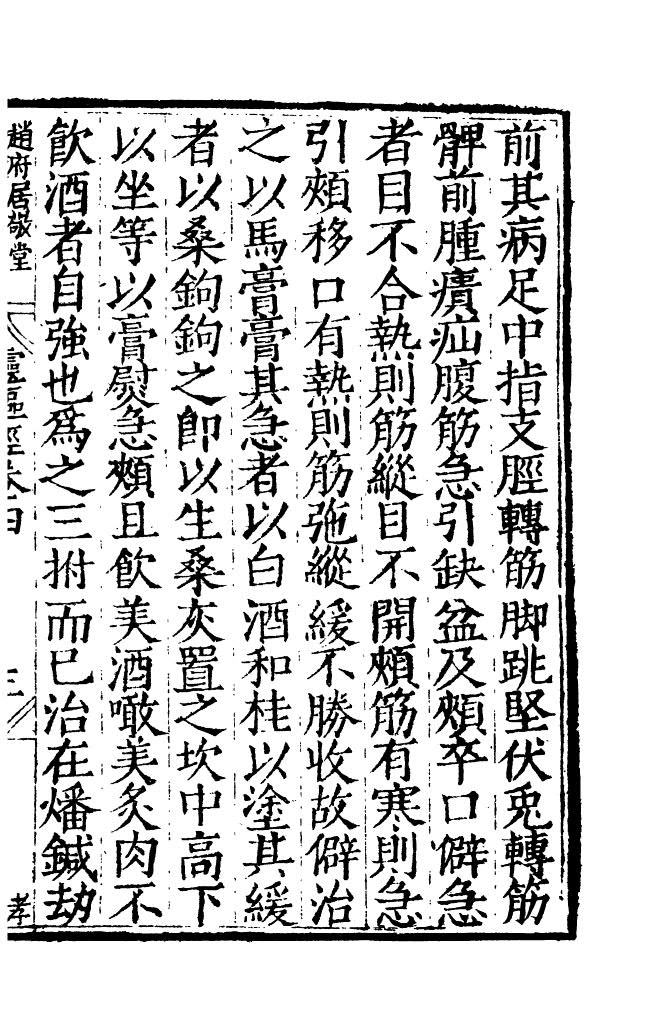 前其病足中指支脛轉筋脚跳堅伏兎轉筋
髀前腫㿉疝腹筋急引缺盆及頰卒口僻急
者目不合熱則筋縱目不開頰筋有寒則急
引頰移口有熱則筋弛縱緩不勝收故僻治
之以馬膏膏其急者以白酒和桂以塗其緩
者以桑鉤鉤之即以生桑灰置之坎中高下
以坐等以膏熨急頰且飲美酒噉美炙肉不
飲酒者自強也爲之三拊而已治在燔鍼劫
趙府居敬堂
靈樞經卷四
三
孝